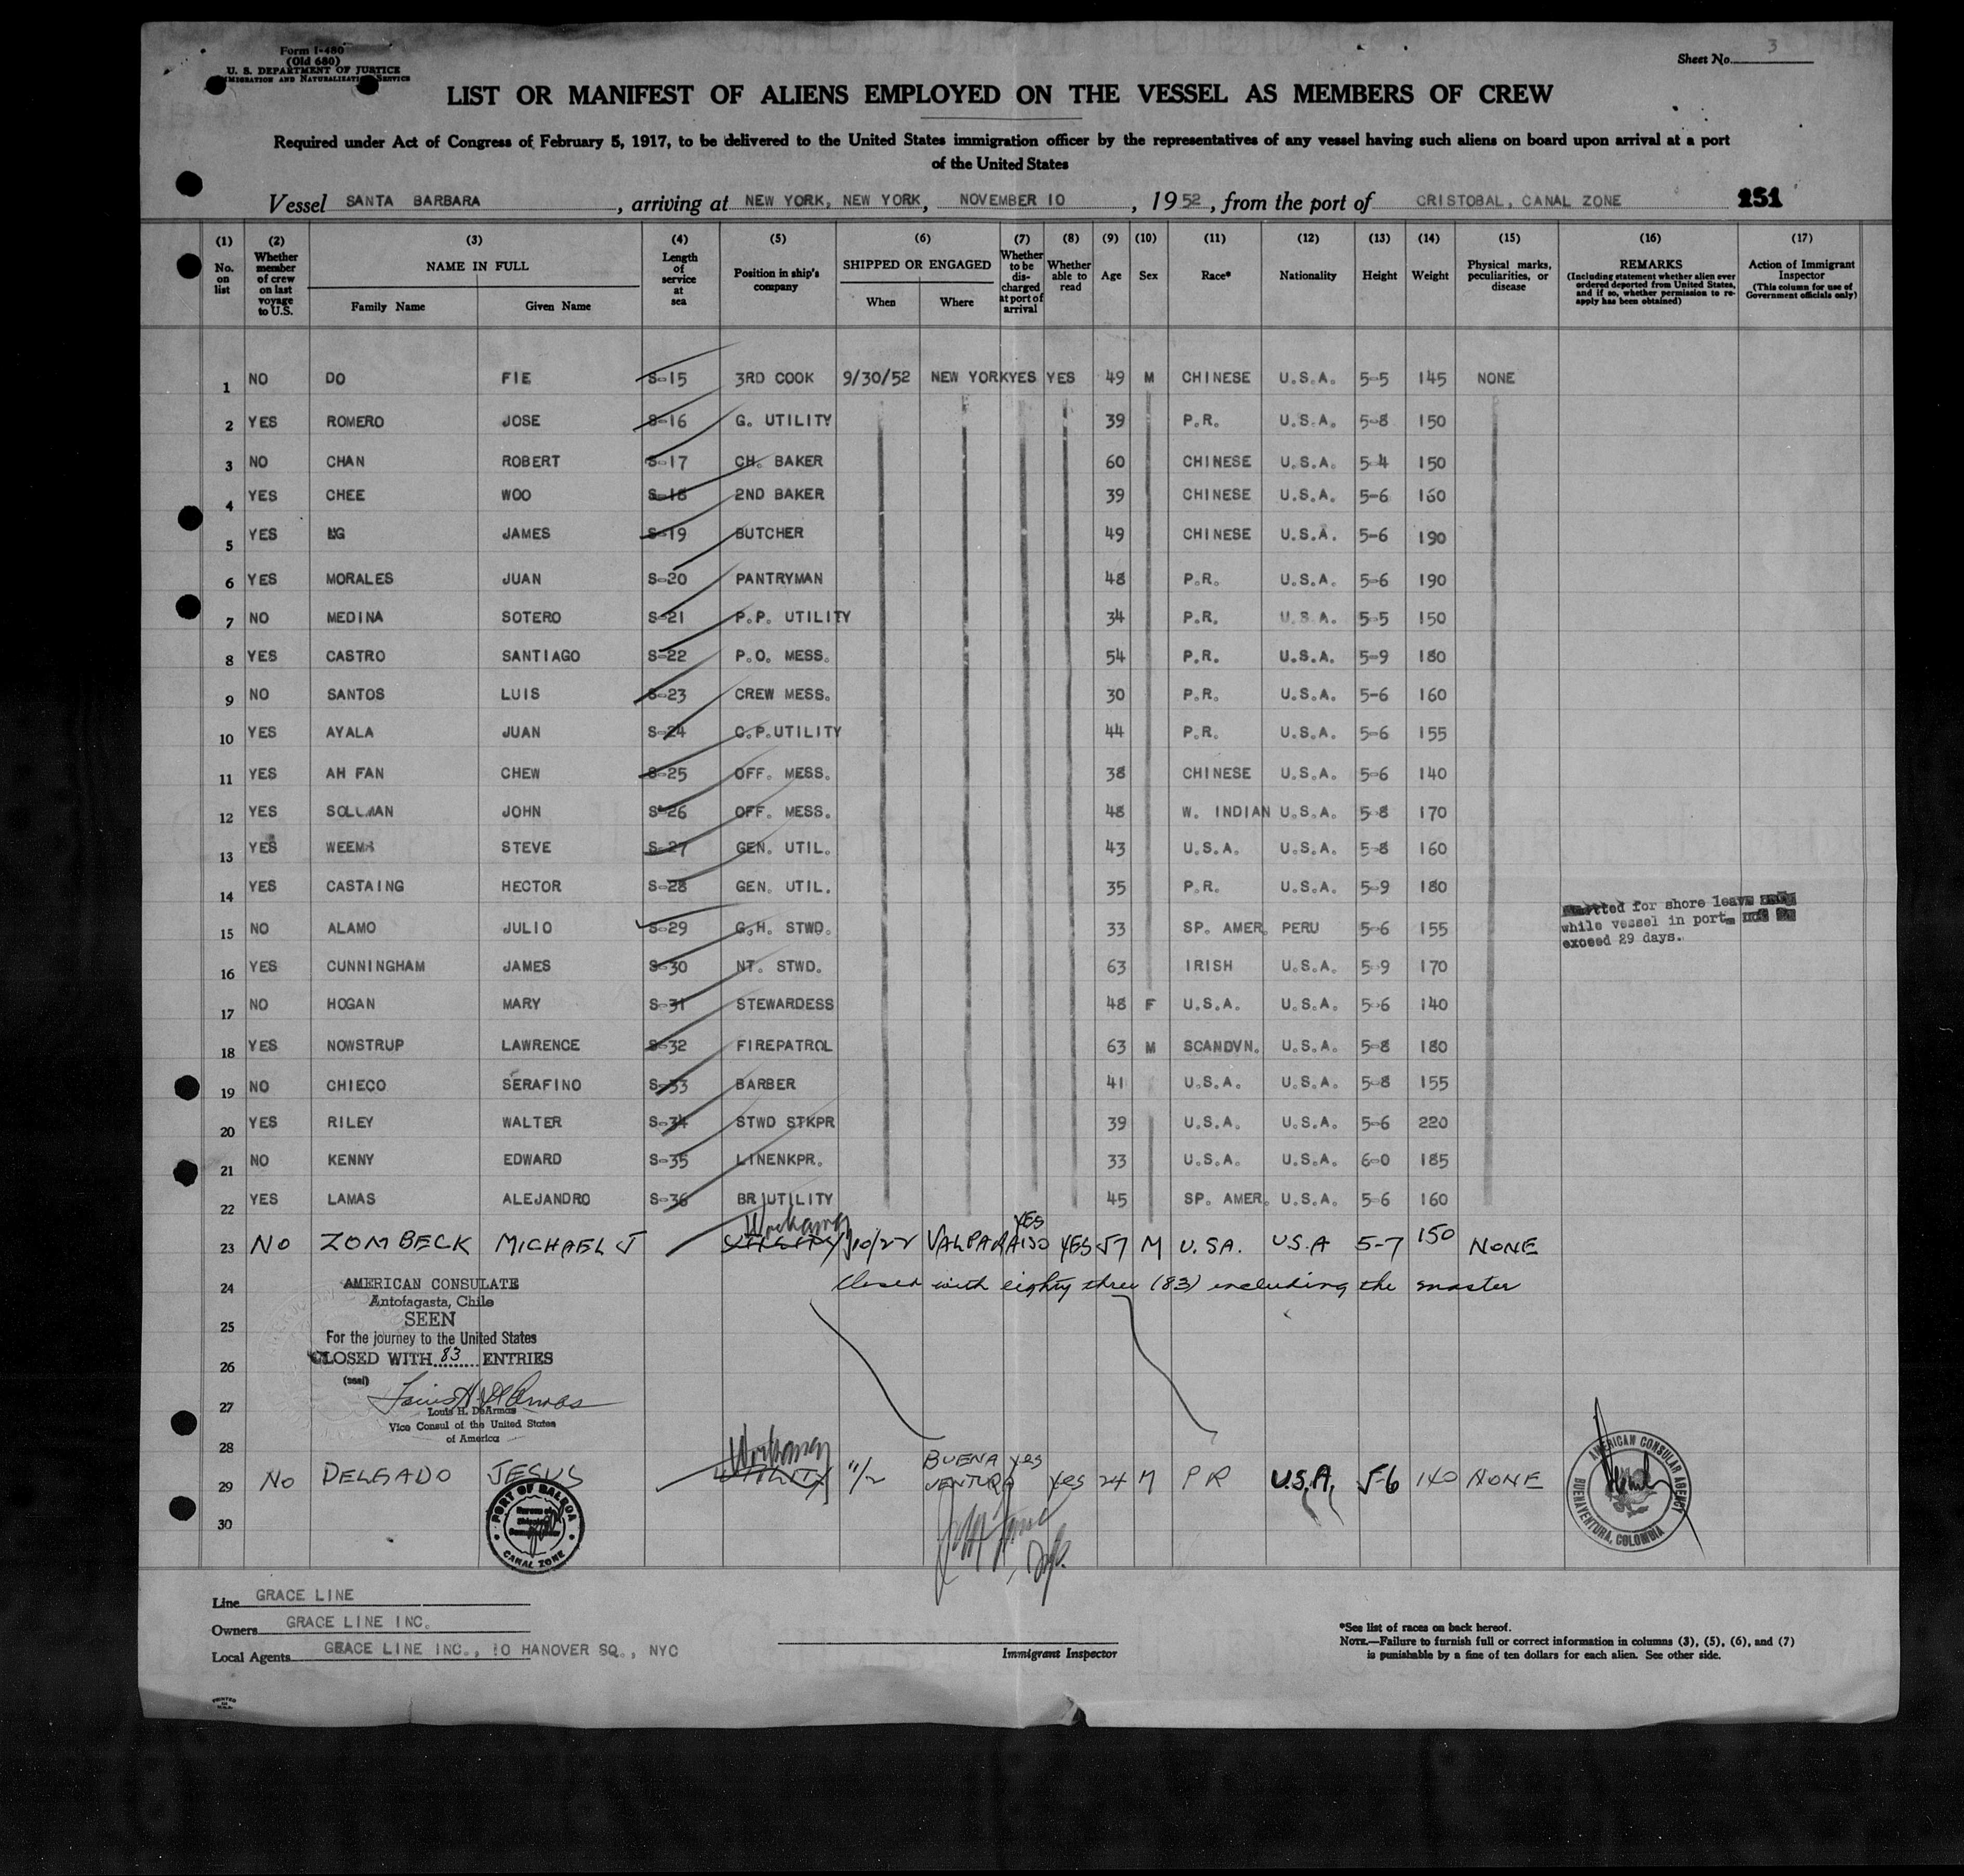 Form I-480
(Old 680)
U. S. DEPARTMENT OF JUSTICE
IMMIGRATION AND NATURALIZATION SERVICE
Sheet No. 3
LIST OR MANIFEST OF ALIENS EMPLOYED ON THE VESSEL AS MEMBERS OF CREW
Required under Act of Congress of February 5, 1917, to be delivered to the United States immigration officer by the representatives of any vessel having such aliens on board upon arrival at a port
of the United States
Vessel SANTA BARBARA, arriving at NEW YORK, NEW YORK, NOVEMBER 10, 1952, from the port of CRISTOBAL, CANAL ZONE 251
(1) No. on list
(2) Whether member of crew on last voyage to U.S.
(3) NAME IN FULL Family Name Given Name
(4) Length of service at sea
(5) Position in ship's company
(6) SHIPPED OR ENGAGED When Where
(7) Whether to be discharged at port of arrival
(8) Whether able to read
(9) Age
(10) Sex
(11) Race*
(12) Nationality
(13) Height
(14) Weight
(15) Physical marks, peculiarities, or disease
(16) REMARKS (Including statement whether alien ever ordered deported from United States, and if so, whether permission to reapply has been obtained)
(17) Action of Immigrant Inspector (This column for use of Government officials only)
1 NO DO FIE S-15 3RD COOK 9/30/52 NEW YORK YES YES 49 M CHINESE U.S.A. 5-5 145 NONE
2 YES ROMERO JOSE S-16 G. UTILITY 39 P.R. U.S.A. 5-8 150
3 NO CHAN ROBERT S-17 CH. BAKER 60 CHINESE U.S.A. 5-4 150
4 YES CHEE WOO S-18 2ND BAKER 39 CHINESE U.S.A. 5-6 160
5 YES NG JAMES S-19 BUTCHER 49 CHINESE U.S.A. 5-6 190
6 YES MORALES JUAN S-20 PANTRYMAN 48 P.R. U.S.A. 5-6 190
7 NO MEDINA SOTERO S-21 P.P. UTILITY 34 P.R. U.S.A. 5-5 150
8 YES CASTRO SANTIAGO S-22 P.O. MESS. 54 P.R. U.S.A. 5-9 180
9 NO SANTOS LUIS S-23 CREW MESS. 30 P.R. U.S.A. 5-6 160
10 YES AYALA JUAN S-24 C.P.UTILITY 44 P.R. U.S.A. 5-6 155
11 YES AH FAN CHEW S-25 OFF. MESS. 38 CHINESE U.S.A. 5-6 140
12 YES SOLLMAN JOHN S-26 OFF. MESS. 48 W. INDIAN U.S.A. 5-8 170
13 YES WEEMS STEVE S-27 GEN. UTIL. 43 U.S.A. U.S.A. 5-8 160
14 YES CASTAING HECTOR S-28 GEN. UTIL. 35 P.R. U.S.A. 5-9 180
15 NO ALAMO JULIO S-29 G.H. STWD. 33 SP. AMER. PERU 5-6 155
for shore leave
while vessel in port
exceed 29 days.
16 YES CUNNINGHAM JAMES S-30 NT. STWD. 63 IRISH U.S.A. 5-9 170
17 NO HOGAN MARY S-31 STEWARDESS 48 F U.S.A. U.S.A. 5-6 140
18 YES NOWSTRUP LAWRENCE S-32 FIREPATROL 63 M SCANDVN. U.S.A. 5-8 180
19 NO CHIECO SERAFINO S-33 BARBER 41 U.S.A. U.S.A. 5-8 155
20 YES RILEY WALTER S-34 STWD STKPR 39 U.S.A. U.S.A. 5-6 220
21 NO KENNY EDWARD S-35 LINENKPR. 33 U.S.A. U.S.A. 6-0 185
22 YES LAMAS ALEJANDRO S-36 BR UTILITY 45 SP. AMER. U.S.A. 5-6 160
23 NO ZOMBECK MICHAEL J Workaway UTILITY 10/22 VALPARAISO YES YES 57 M U.S.A. U.S.A 5-7 150 NONE
24 Closed with eighty three (83) including the master
AMERICAN CONSULATE
Antofagasta, Chile
SEEN
25 For the journey to the United States
26 CLOSED WITH 83 ENTRIES
(seal)
27 Louis H. DeArmas
Vice Consul of the United States
of America
28
29 NO DELGADO JESUS Workaway UTILITY 11/2 BUENA VENTURA yes yes 24 M PR U.S.A. 5-6 140 NONE
30
PORT OF BALBOA
CANAL ZONE
AMERICAN CONSULAR AGENCY
BUENAVENTURA, COLOMBIA
Line GRACE LINE
Owners GRACE LINE INC.
Local Agents GRACE LINE INC., 10 HANOVER SQ., NYC
Immigrant Inspector
*See list of races on back hereof.
NOTE.—Failure to furnish full or correct information in columns (3), (5), (6), and (7)
is punishable by a fine of ten dollars for each alien. See other side.
PRINTED
IN
U.S.A.